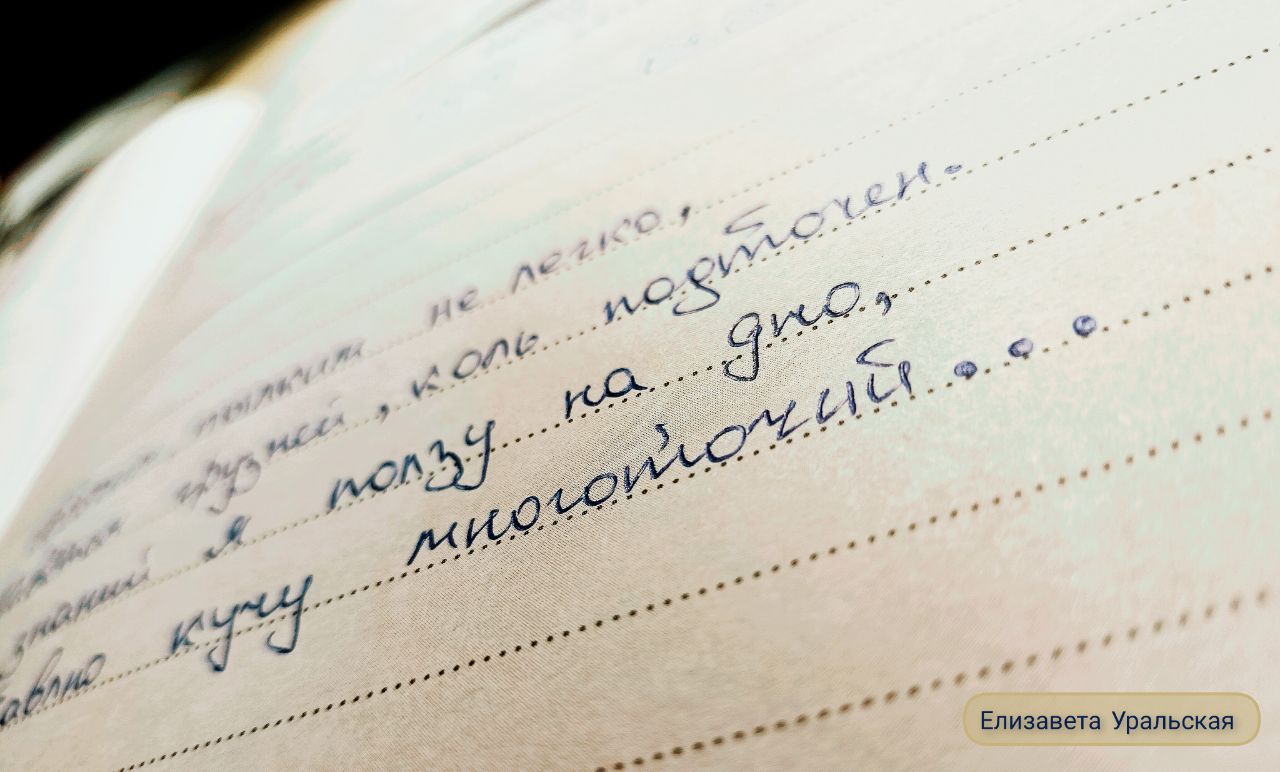 пылким не легко,
друзей, коль подточен.
знаний я ползу на дно,
авлю кучу многоточий...
Елизавета Уральская